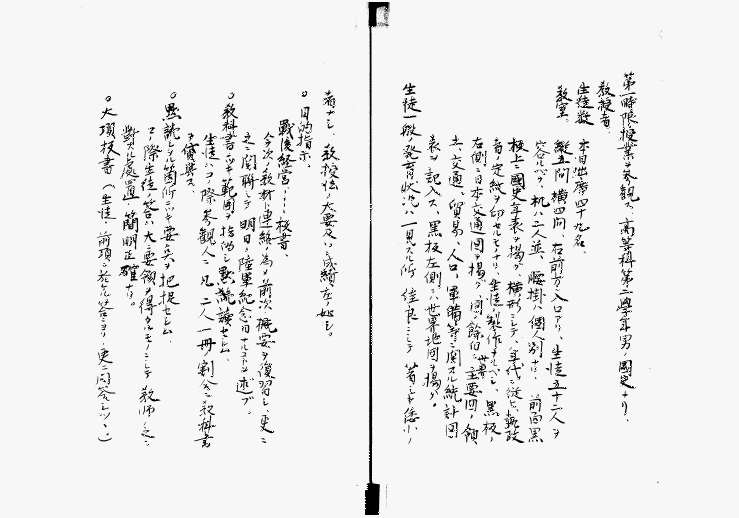 第一時限授業ヲ参観ス、高等科第二學年男ノ國史ナリ、
教授者、
生徒数 本日出席四十九名、
教室、 縦五间横四间、右前方ニ入口アリ、生徒五十二人ヲ
容ルベク、机ハ二人並、腰掛ハ個人別ナリ、前面黒
板上ニ國史年表ヲ掲グ、横形ニシテ、年代ニ従ヒ執政
者ノ定紋ヲ印セルモノナリ、生徒ノ製作ナルベシ、黒板ノ
右側ニ日本交通図ヲ掲グ、図ノ餘白ニ世界主要国ノ領
土、交通、貿易、人口、軍備等ニ関スル統計図
表ヲ記入ス、黒板左側ニハ世界地図ヲ掲グ。
生徒一般ノ発育状況ハ一見スル所佳良ニシテ著シキ倭小
者ナシ、教授法ノ大要及ビ成績左ノ如シ。
○目的指示、
戦後経営……板書、
今次ノ教材ト連絡ノ為メ前次ノ概要ヲ復習シ、更ニ
之ニ関聯シテ明日ノ陸軍紀念日ナルコトヲ述ブ。
○教科書ニツキ範囲ヲ指伤シ黙読セシム、
生徒ハコノ際参観人ニ凡ソ二人一冊ノ割合ニ教科書
ヲ貸與ス、
○黙読シタル箇所ニツキ要点ヲ把捉セシム、
コノ際生徒ノ答ハ大ニ要領ヲ得タルモノニシテ教師ノ之ニ
對スル處置、簡明正確ナリ。
○大項板書(生徒ノ前項ニ於ケル答ニヨリ更ニ問答シツヽ、)